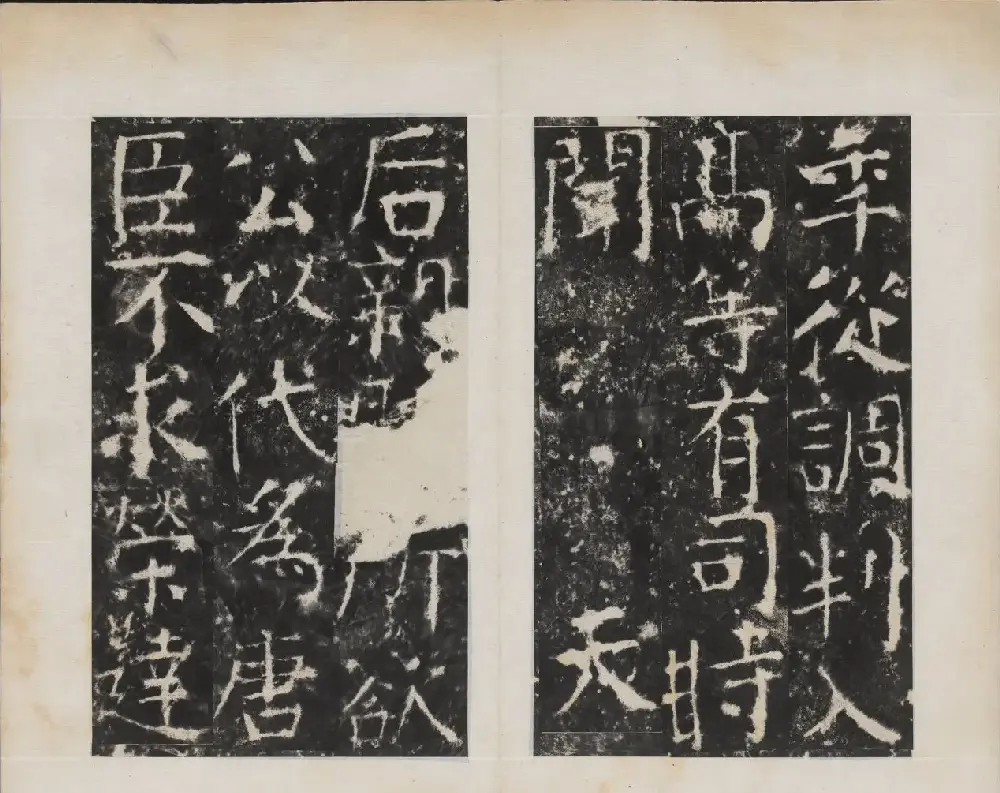 年從調判入
高等有司時
聞天
后所欲
公以代為唐
臣不求榮達